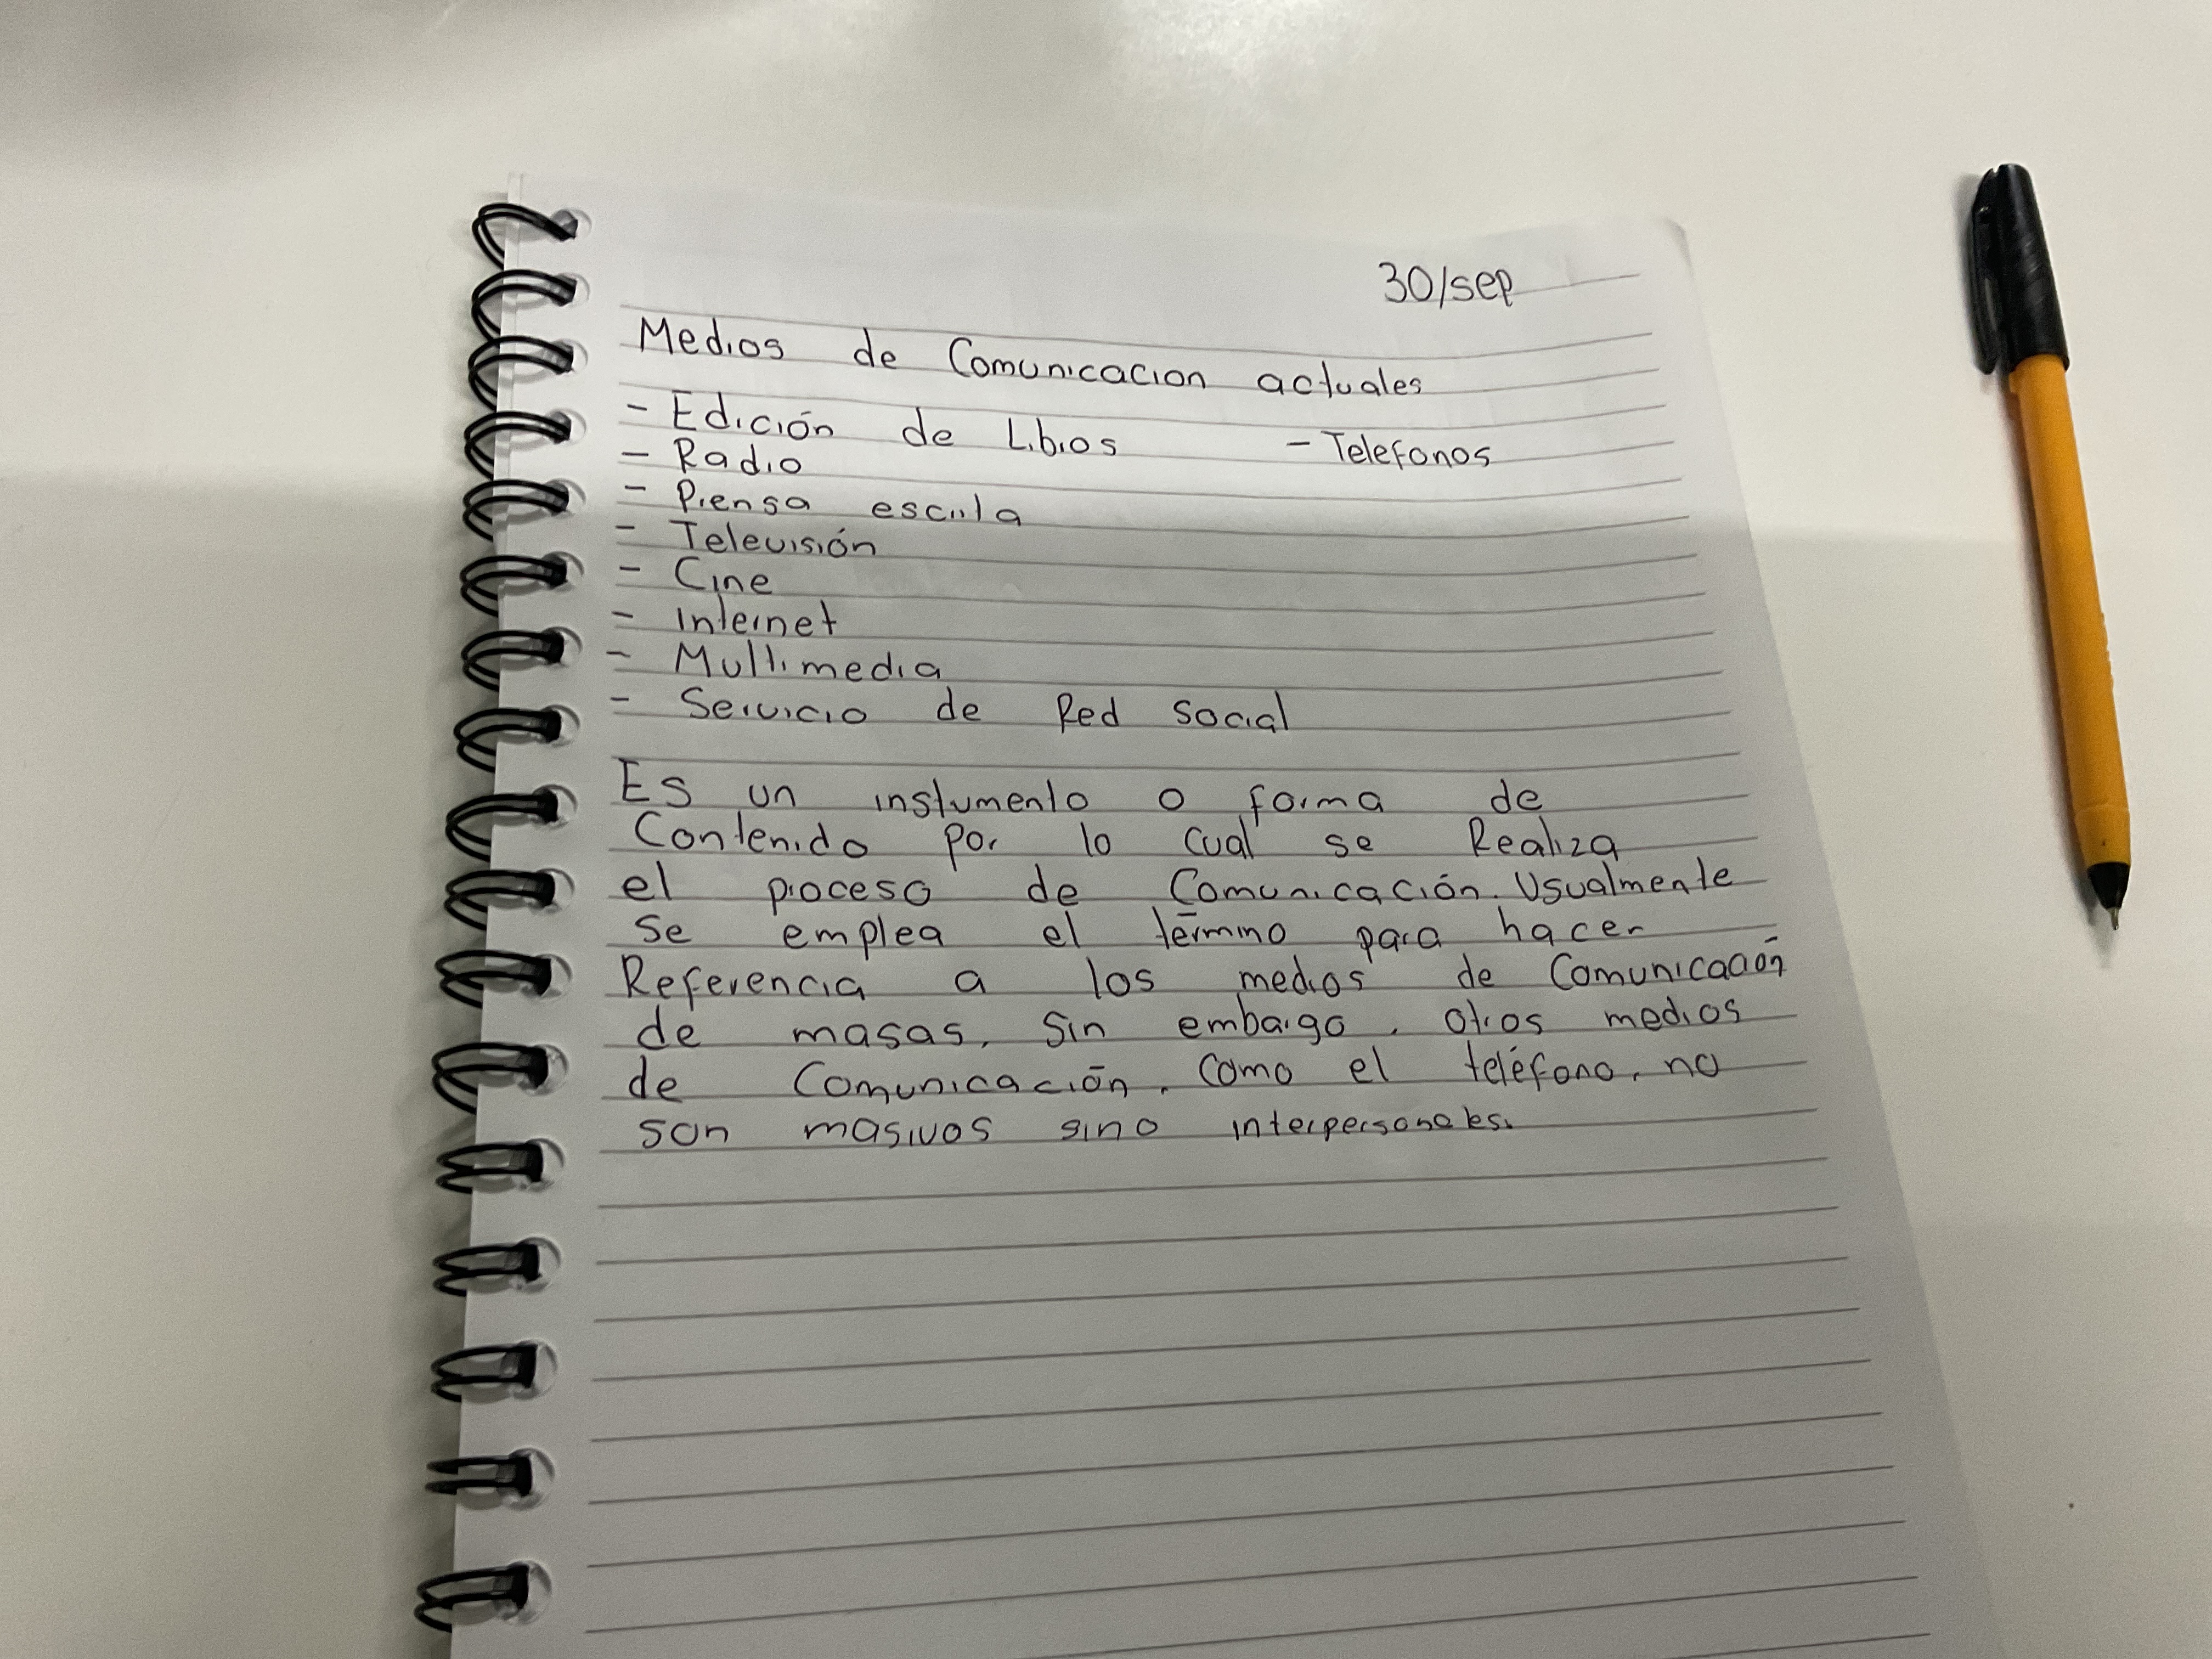 30/sep
Medios de Comunicacion actuales
- Edición de Libros - Telefonos
- Radio
- Prensa escrita
- Televisión
- Cine
- Internet
- Multimedia
- Servicio de Red social
Es un instumento o forma de
Contenido por lo cual se Realiza
el proceso de Comunicación. Usualmente
se emplea el término para hacer
Referencia a los medios de Comunicación
de masas, sin embargo, otros medios
de Comunicación, como el teléfono, no
son masivos sino interpersonales.